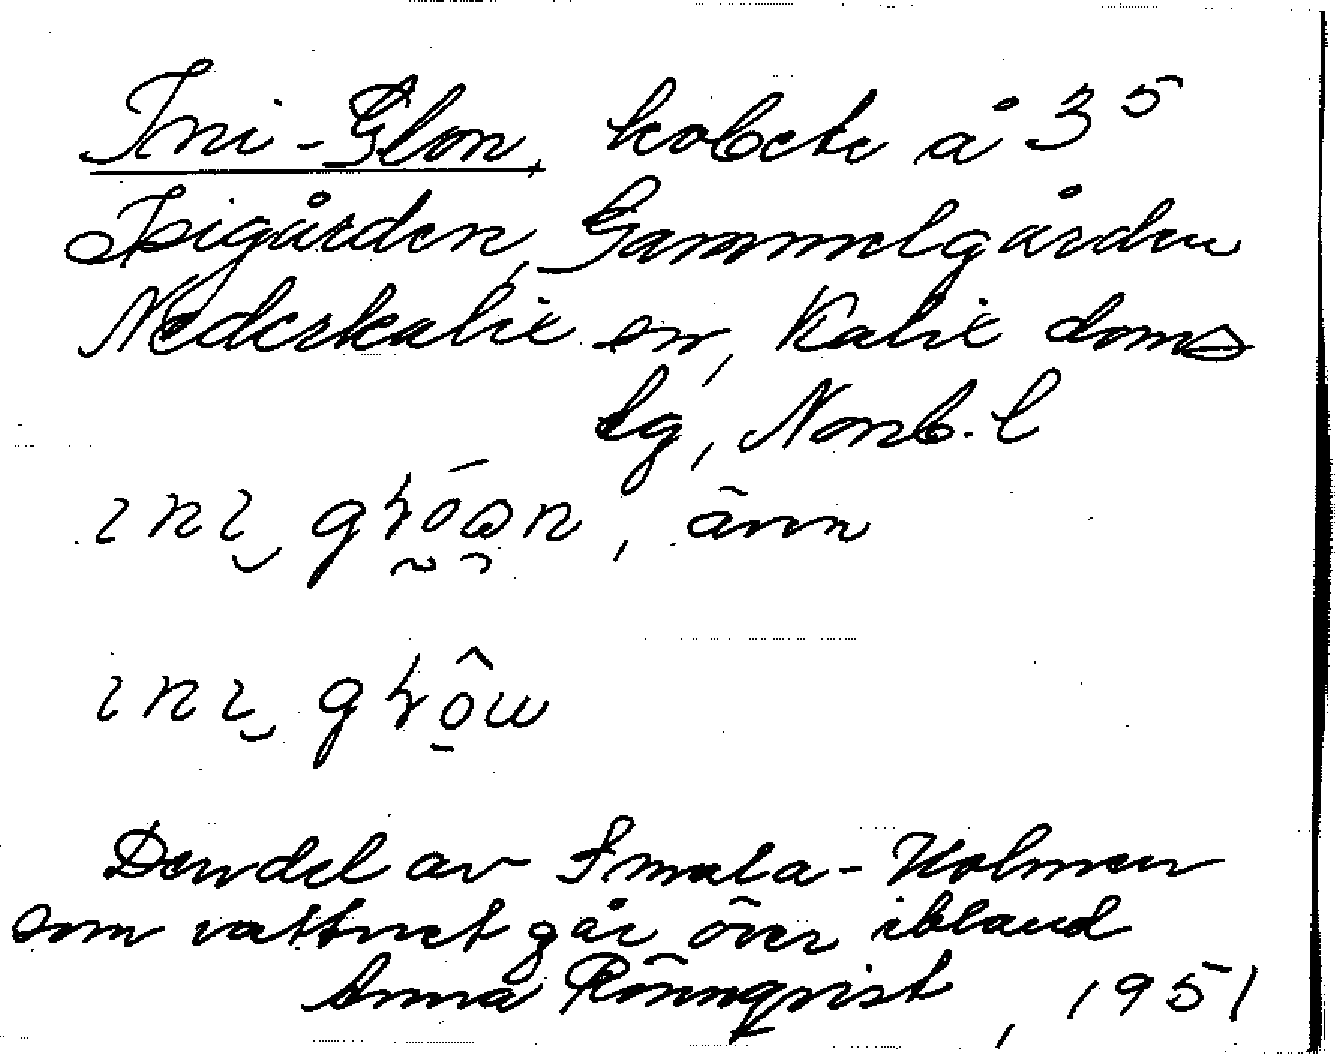 Ini-Glon, kobete å 3⁵
Isigården, Gammelgården
Nederkalix sn, Kalix doms
lg, Norrb. l
änn
Den del av Smala-Holmen
som vattnet går över ibland
Anna Rönnqvist, 1951